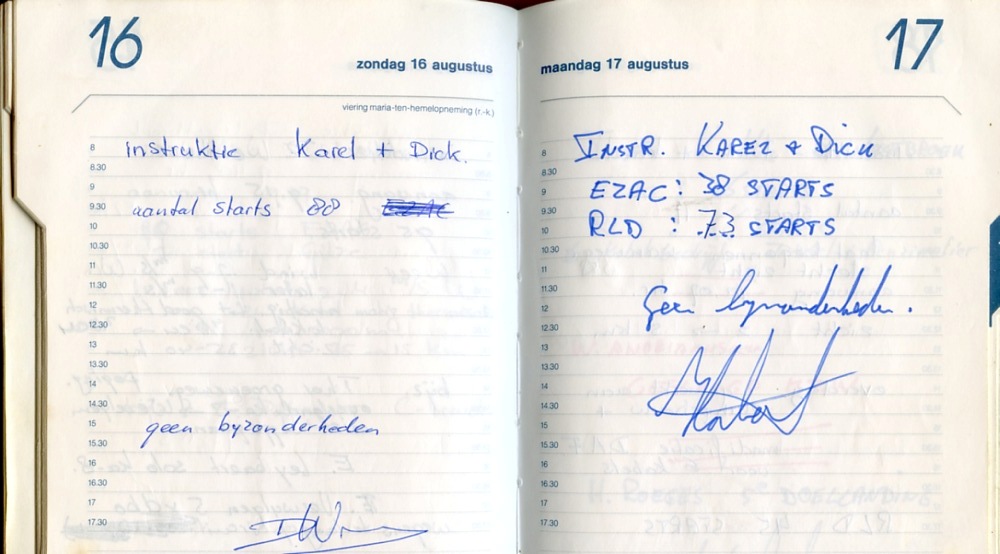 16
zondag 16 augustus
viering maria-ten-hemelopneming (r.-k.)
8 instruktie Karel + Dick.
8.30
9
9.30 aantal starts 88
10
10.30
11
11.30
12
12.30
13
13.30
14
14.30
15 geen byzonderheden
15.30
16
16.30
17
17.30
17
maandag 17 augustus
8 INSTR. KAREL + DICK
8.30
9 EZAC: 38 STARTS
9.30
10 RLD : 73 STARTS
10.30
11
11.30
12 Geen byzonderheden.
12.30
13
13.30
14
14.30
15
15.30
16
16.30
17
17.30